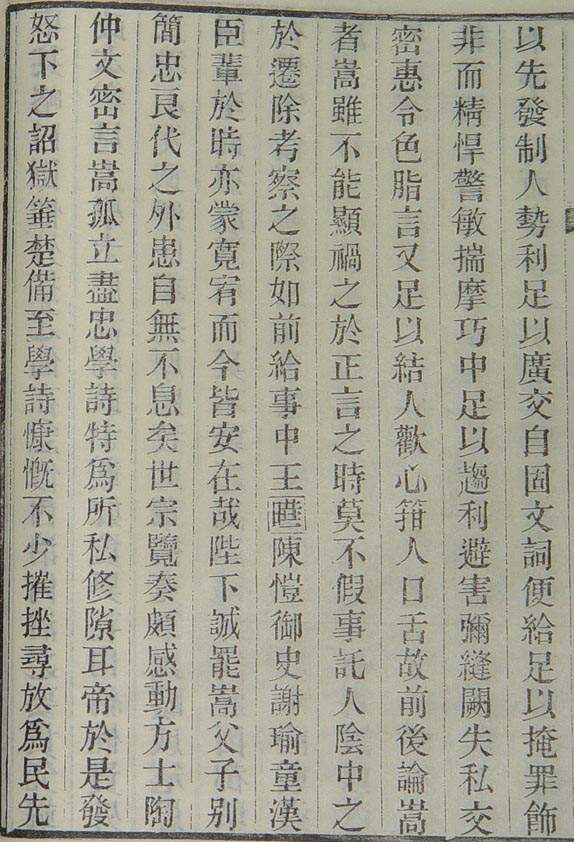 以先發制人勢利足以廣交自固文詞便給足以掩罪飾
非而精悍警敏揣摩巧中足以趨利避害彌縫闕失私交
密惠令色脂言又足以結人歡心箝人口舌故前後論嵩
者嵩雖不能顯禍之於正言之時莫不假事託人陰中之
於遷除考察之際如前給事中王㬊陳愷御史謝瑜童漢
臣輩於時亦蒙寬宥而今皆安在哉陛下誠罷嵩父子别
簡忠良代之外患自無不息矣世宗覽奏頗感動方士陶
仲文密言嵩孤立盡忠學詩特爲所私修隙耳帝於是發
怒下之詔獄箠楚備至學詩慷慨不少摧挫尋放爲民先